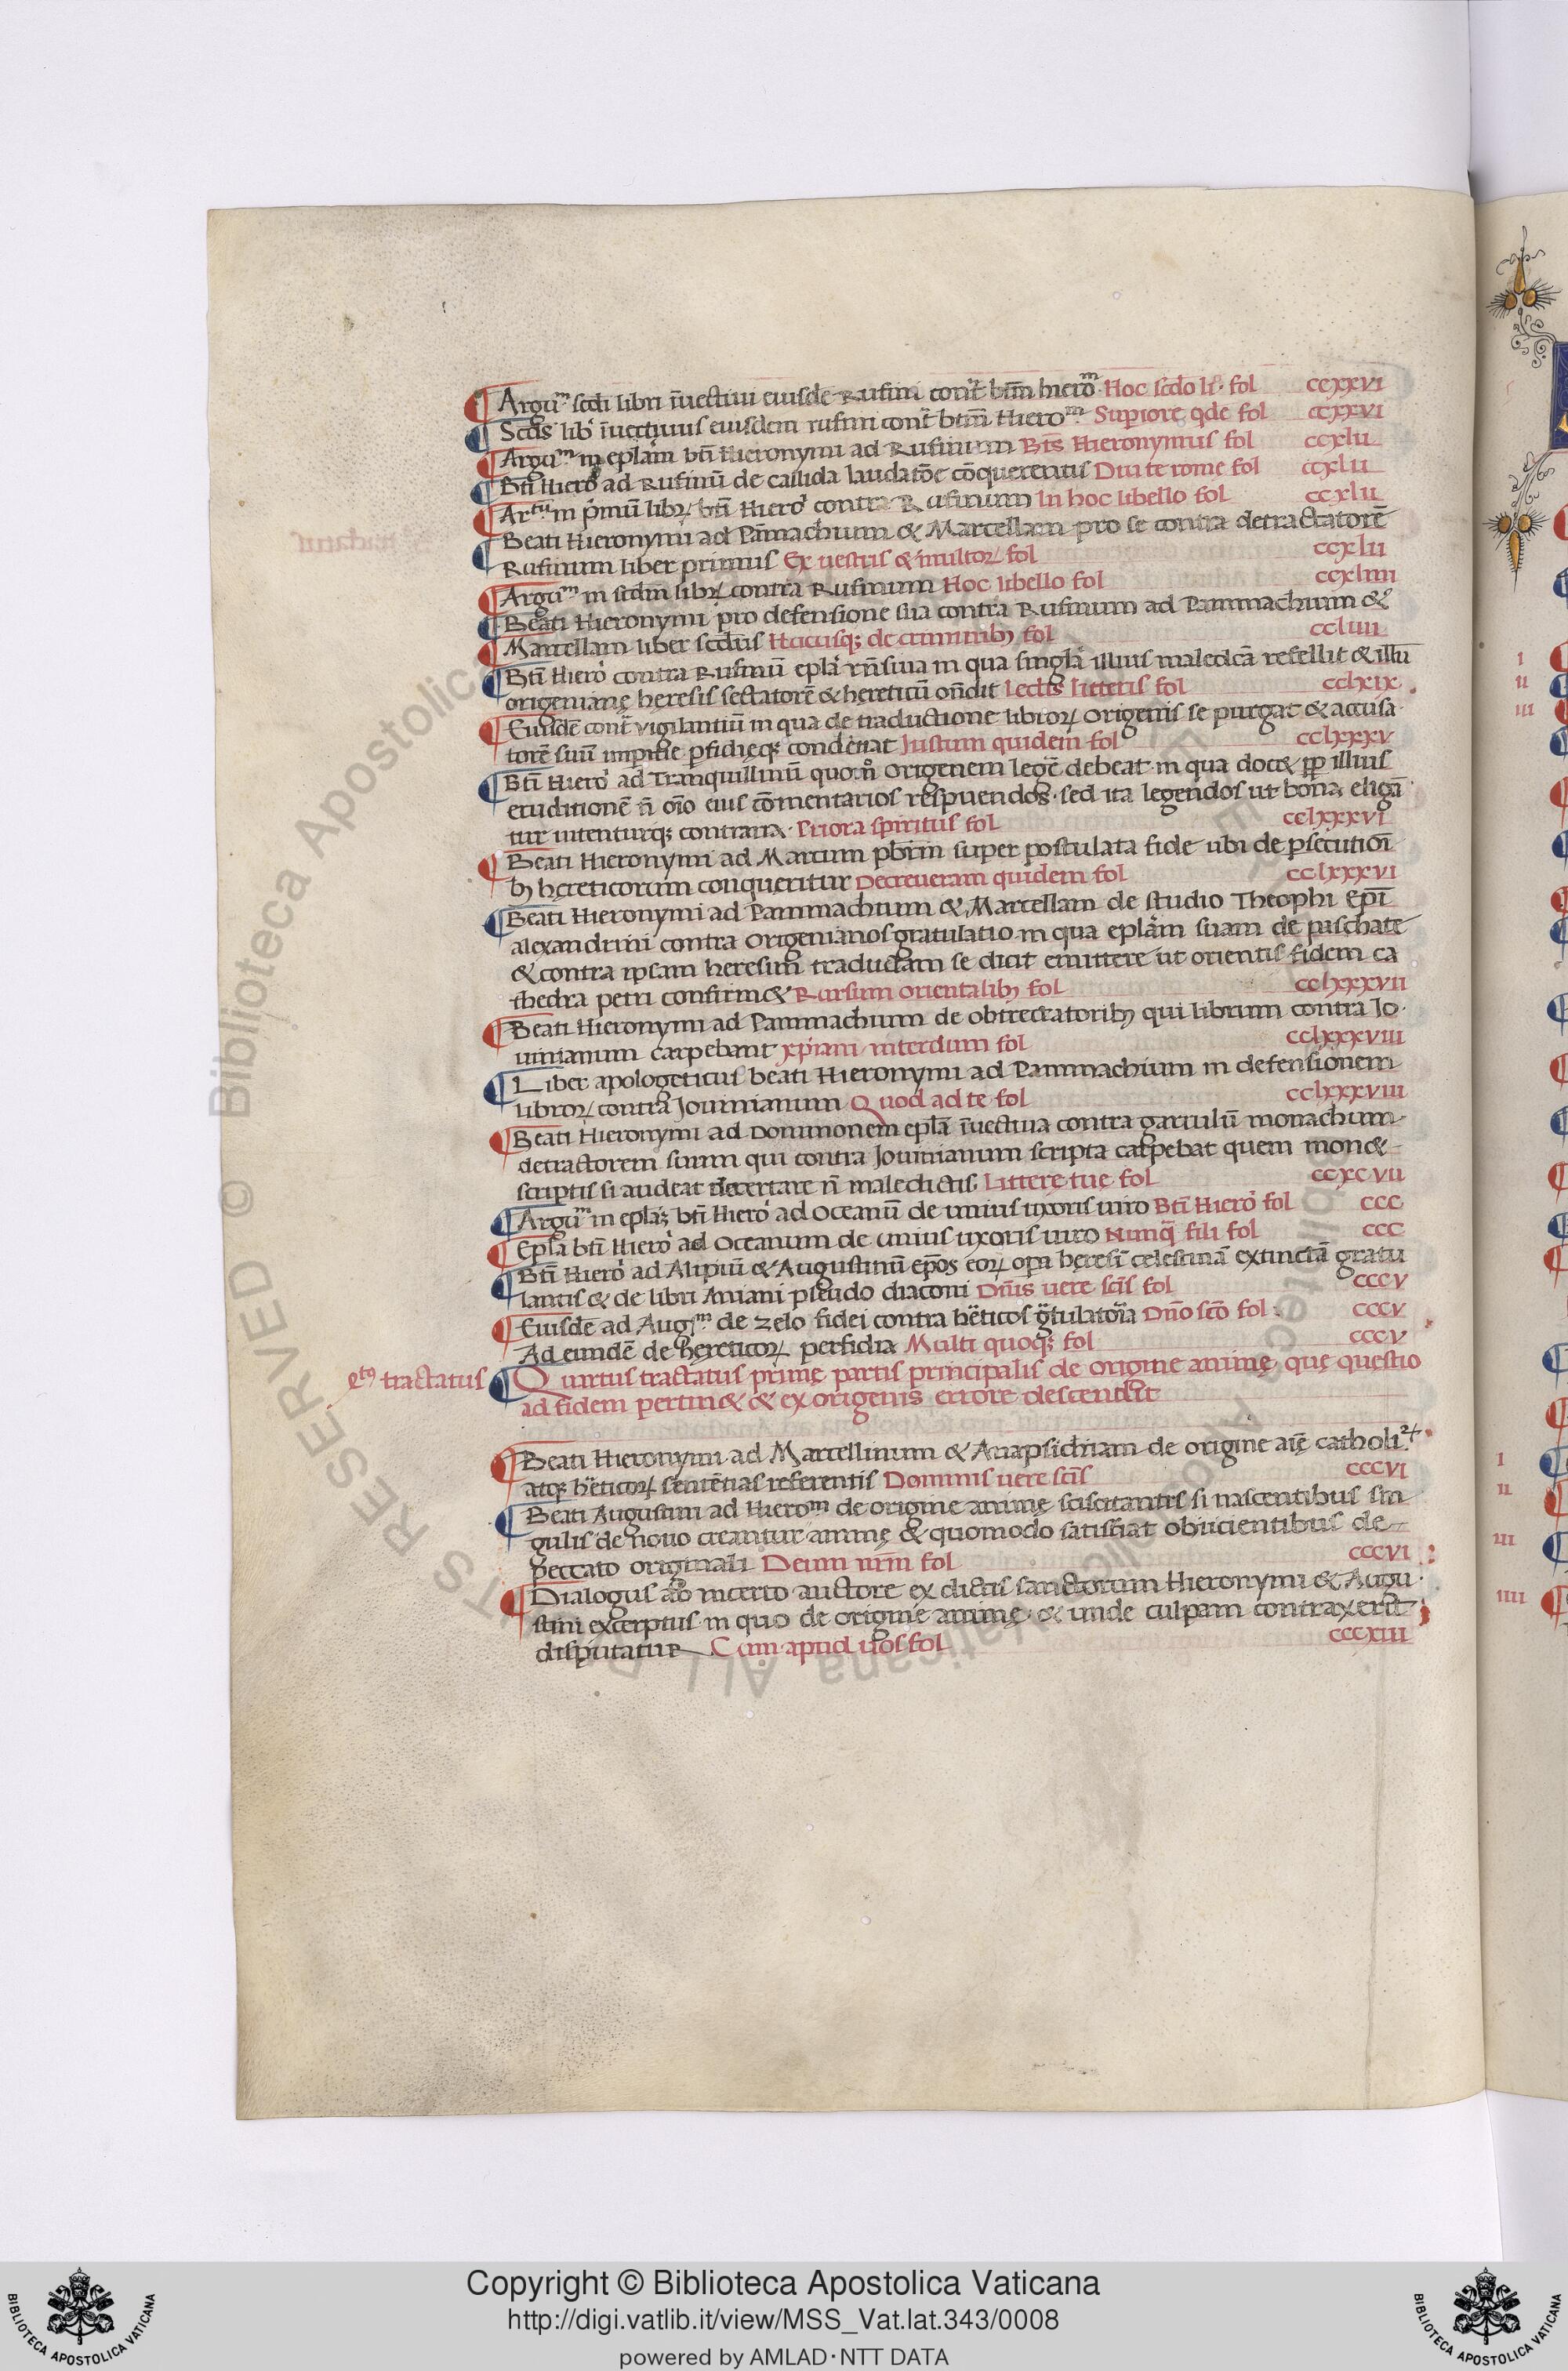 Argūᵐ scdi libri īuectiui eiusdē Rufini cont̄ btm̄ hieroᵐ Hoc scdo li°. fol ccxxvi
Scds lib̄ īuectiuus eiusdem rufini cont̄ btm̄ Hieroᵐ Supiore qde fol ccxxvi
Argūᵐ in eplām btī Hieronymi ad Rufinum Bt̄s Hieronymus fol ccxlii
Btī Hiero ad Rufinū de callida laudatōe cōquerentis Diu te rome fol ccxlii
Arᵗᵘ in p̄mū libꝝ btī Hiero contra Rufinum In hoc libello fol ccxlii
Beati Hieronymi ad Pāmachium & Marcellam pro se contra detractatorē
Rufinum liber primus Ex uestris & multoꝝ fol ccxlii
Argūᵐ in scdm̄ libꝝ contra Rufinum Hoc libello fol ccxliiii
Beati Hieronymi pro defensione sua contra Rufinum ad Pammachium &
Marcellam liber scdus Hucusqꝫ de criminibꝫ fol ccliiii
Btī Hiero contra Rufinū eplā rn̄siua in qua singlā illius maledcā refellit & illū
origenianę hęresis sectatorē & hęreticū on̄dit Lectis litteris fol cclxix
Eiusdē cont̄ vigilantiū in qua de traductione libroꝝ Origenis se purgat & accusa
torē suū imp̄itię p̄fidięqꝫ condēnat Iustum quidem fol cclxxxv
Btī Hiero ad Tranquillinū quom̊ Origenem legē debeat in qua doc& pp̄ illius
eruditionē n̄ oīo eius cōmentarios respuendos. sed ita legendos ut bona eligā
tur uitenturqꝫ contraria. Priora spiritus fol cclxxxvi
Beati Hieronymi ad Marcum pbrm̄ super postulata fide ubi de p̄secutioī
bꝫ hęreticorum conqueritur Decreueram quidem fol cclxxxvi
Beati Hieronymi ad Pammachium & Marcellam de studio Theophi Epī
alexandrini contra Origenianos gratulatio in qua eplām suam de paschate
& contra ipsam heresim traductam se dicit emittere ut orientis fidem ca
thedra petri confirm& Rursum orientalibꝫ fol cclxxxvii
Beati Hieronymi ad Pammachium de obtrectatoribꝫ qui librum contra Io
uinianum carpebant xp̄iani interdum fol cclxxxviii
Liber apologeticus beati Hieronymi ad Pammachium in defensionem
libroꝝ contra Iouinianum Quod ad te fol cclxxxviii
Beati Hieronymi ad Domnionem eplā īuectiua contra garrulū monachum
detractorem suum qui contra Iouinianum scripta carpebat quem mon&
scriptis si audeat decertare n̄ maledictis. Litterę tuę fol ccxcvii
Argūᵐ in eplāꝫ btī Hiero ad Oceanū de unius uxoris uiro Btī Hiero fol ccc
Eplā btī Hiero ad Oceanum de unius uxoris uiro Nunq̄ fili fol ccc
Btī Hiero ad Alipiū & Augustinū ep̄os eoꝝ opa hęresī celestinā extinctā gratu
lantis & de libri Aniani pseudo diaconi Dn̄is uere sc̄is fol cccv
Eiusdē ad Augᵐ de zelo fidei contra hēticos gtulatoria Dn̄o sco fol. cccv
Ad eundē de hęreticoꝝ perfidia Multi quoqꝫ fol cccv
qᵗᵘˢ tractatus
Quartus tractatus primę partis principalis de origine animę quę questio
ad fidem pertin& & ex origenis errore descendit
Beati Hieronymi ad Marcellinum & Anapsichiam de origine aīę catholi²⁴
atqꝫ hēticoꝝ sentētias referentis Dominis uere scīs cccvi
Beati Augustini ad Hieroᵐ de origine animę sciscitantis si nascentibus sin
gulis de nouo creantur animę & quomodo satisfiat obiicientibus de
peccato originali Deum nrm̄ fol cccvi
Dialogus ab incerto auctore ex dictis sanctorum Hieronymi & Augu
stini excerptus in quo de origine animę & unde culpam contraxerit
disputatur Cum aput uos fol cccxiii
i
ii
iii
i
ii
iii
iiii
Copyright © Biblioteca Apostolica Vaticana
http://digi.vatlib.it/view/MSS_Vat.lat.343/0008
powered by AMLAD·NTT DATA
BIBLIOTECA APOSTOLICA VATICANA
BIBLIOTECA APOSTOLICA VATICANA